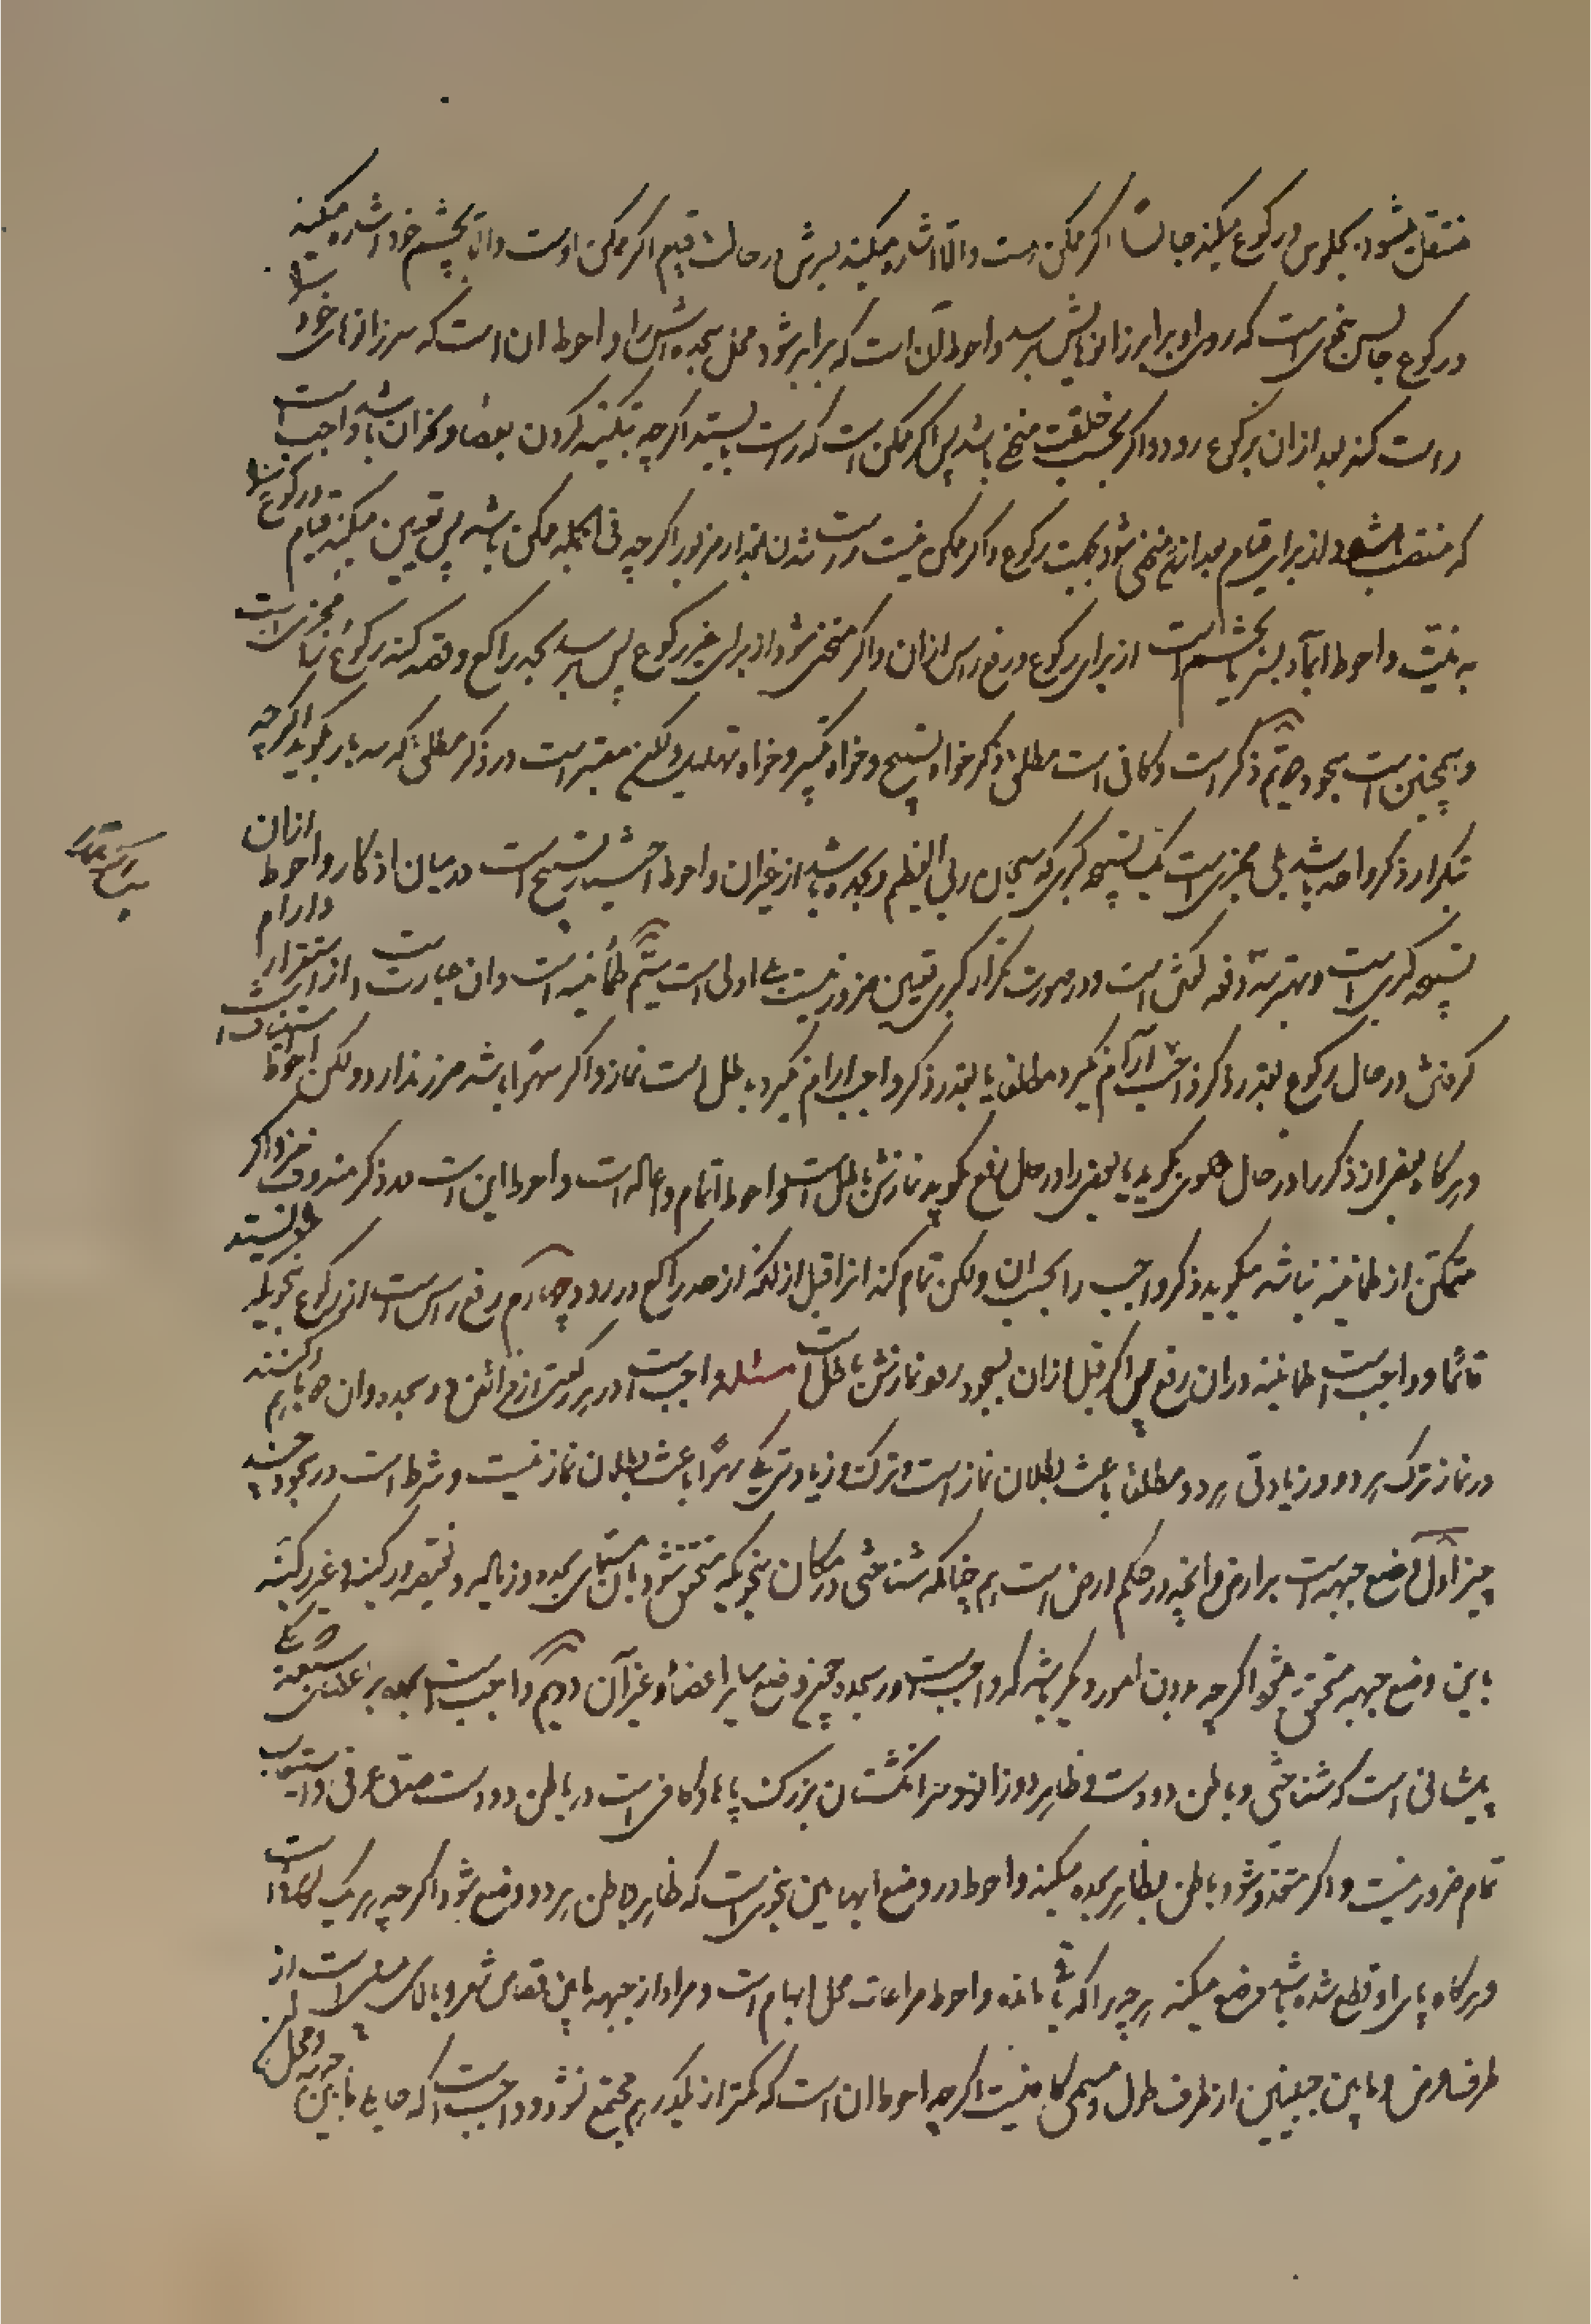 منتقل میشود بجلوس و رکوع میکند جالساً اگر ممکن است والا اشاره میکند بسرش در حالت قیام اگر ممکن است والا بچشم خود اشاره میکند
در رکوع جالس نحوی است که روی او برابر زانوهایش برسد و احوط آن است که برابر شود محل سجده اش را و احوط ان است که سر زانوهای خود را
راست کند بعد ازان برکوع رود و اگر بحسب خلقت منحنی باشد پس اگر ممکن است که راست بایستد اگرچه بتکیه کردن بعصا و نحو ان باشد واجب است
که منتصب شود از برای قیام بعد ازان منحنی شود بجهت رکوع و اگر ممکن نیست راست شدن بمقدار مزبور اگرچه فی الجمله ممکن باشد پس تعیین میکند قیام و رکوع را
به نیت و احوط ایماء بسر یا بچشم است از برای رکوع و رفع راس ازان و اگر منحنی شود از برای غیر رکوع پس برسد بحد راکع و قصد کند رکوع را مجزی است
و همچنین است سجود سیم ذکر است و کافی است مطلق ذکر خواه تسبیح و خواه تکبیر و خواه تهلیل ولکن معتبر است در ذکر مطلق که سه بار بگوید اگرچه
تکرار ذکر واحد باشد بلی مجزی است یک تسبیحه کبری که سبحان ربی العظیم و بحمده باشد از غیر ان و احوط اختیار تسبیح است در میان اذکار و احوط ازان
تسبیحه کبری است و بهتر سه دفعه گفتن است و در صورت تکرار کبری تعیین ضرور نیست بلکه اولی است ششم طمأنینه است و ان عبارت است از استقرار و آرام
گرفتن در حال رکوع بقدر ذکر واجب آرام نگیرد مطلقا یا بقدر ذکر واجب ارام نگیرد باطل است نماز و اگر سهواً باشد ضرر ندارد ولکن احوط استیناف است
و هرگاه بعض از ذکر را در حال هوی بگوید یا بعض را در حال رفع بگوید نمازش باطل است و احوط اتمام و اعاده است و احوط این است در ذکر مندوب نیز و اگر
متمکن از طمأنینه نباشد میگوید ذکر واجب را بحسب امکان ولکن تمام کند انرا قبل ازانکه از حد راکع در رود چهارم رفع راس است از رکوع بحیثیتی که بایستد
قائماً و واجب است طمأنینه دران رفع پس اگر قبل ازان بسجود رود نمازش باطل است مسئله واجب است در هر رکعتی از فرائض دو سجده و ان دو با هم رکنند
در نماز ترک هر دو و زیادتی هر دو مطلقا باعث بطلان نماز است و ترک و زیادتی یکی سهواً باعث بطلان نماز نیست و شرط است در سجود چند
چیز اول وضع جبهه است بر ارض و انچه در حکم ارض است
باین وضع جبهه متحقق میشود اگرچه بدون امور دیگر باشد که واجب است در سجده چون وضع سایر اعضا و غیر آن دویم واجب است سجده بر اعضای سبعه که
پیشانی است که شناختی و باطن دو دست و ظاهر دو زانو و سر انگشتان بزرگ پاها و کافی است در باطن دو دست صدق عرفی و استیعاب
تمام ضرور نیست و اگر متعذر شود باطن بظاهر سجده میکند و احوط در وضع ابهامین نحوی است که ظاهر و باطن هر دو وضع شود اگرچه هر یک کافی است
و هرگاه پای او قطع شده باشد وضع میکند هر چه را که باقی مانده و احوط مراعات محل ابهام است و مراد از جبهه مابین قصاص شعر و بالای بینی است از
طرف عرض و مابین جبینین از طرف طول و مسمی کافیست اگرچه احوط ان است که کمتر از یک درهم مجتمع نشود و واجب است که حایلی مابین جبهه و محل ان